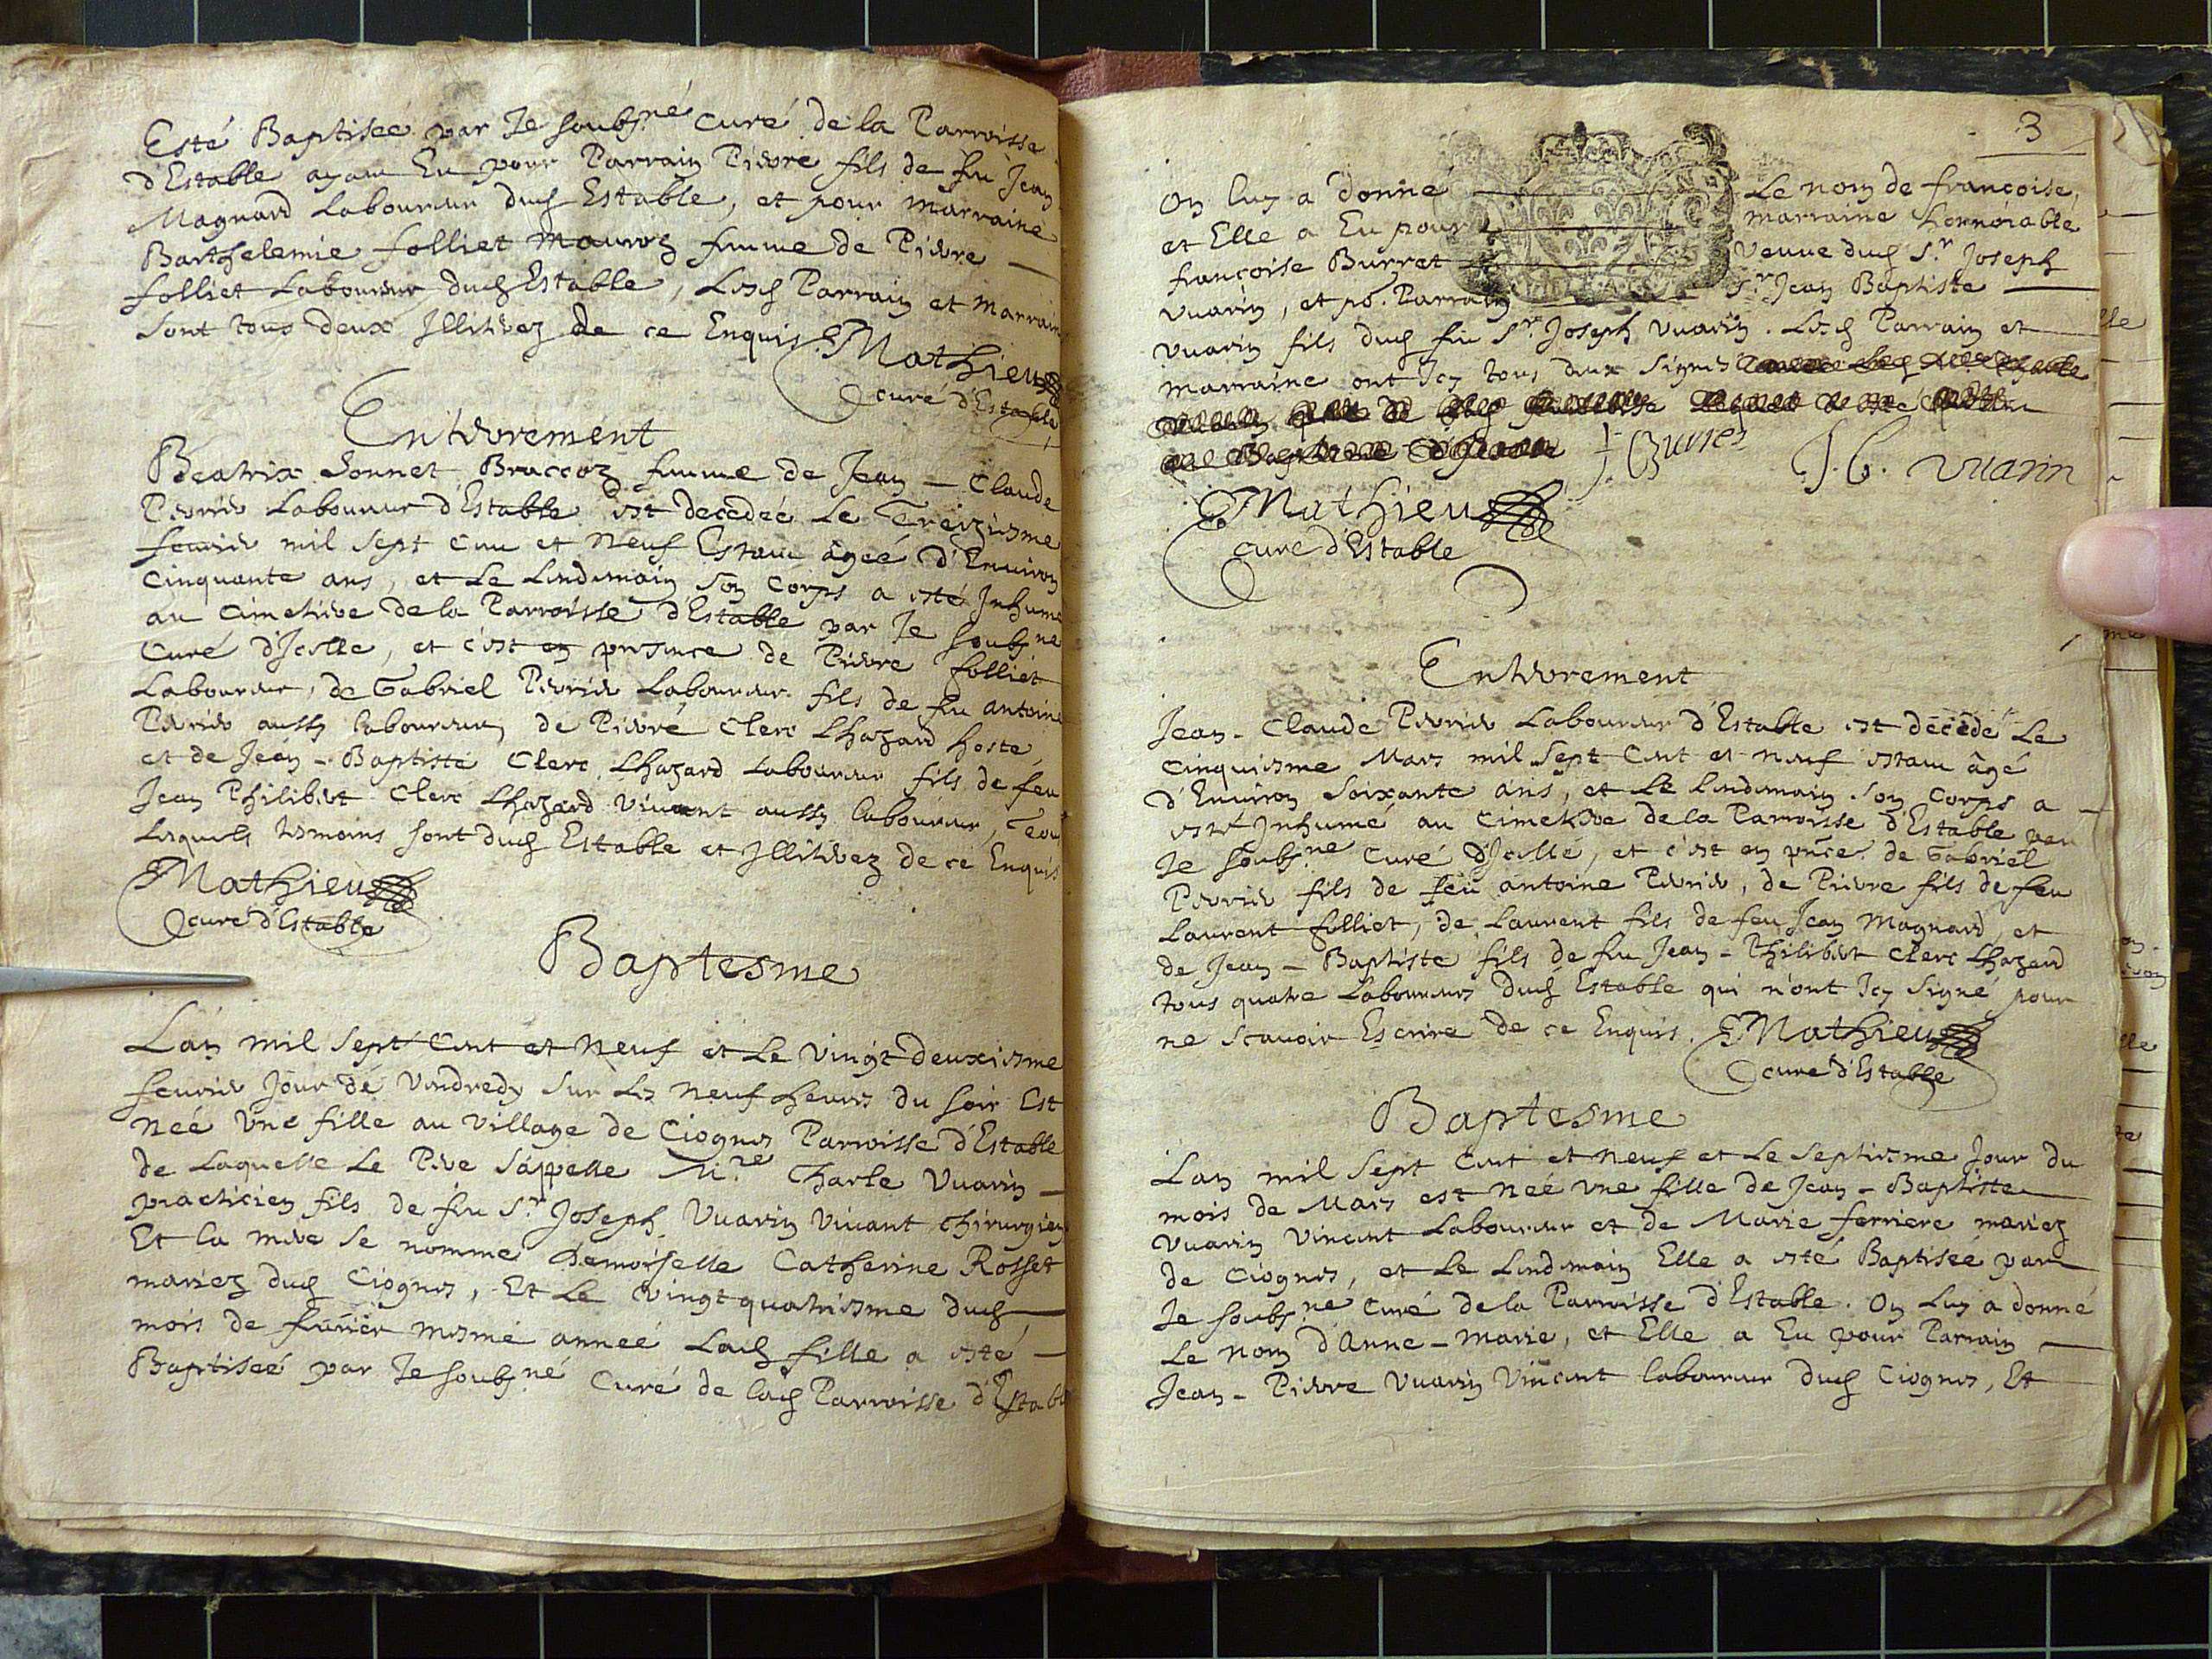 Esté Baptiseé par Je soubsné Curé de la Parroisse
d'Estable ayant Eu pour Parrain Pierre fils de feu Jean
Magnard Laboureur dud Estable, et pour marraine
Barthelemie folliet Mauroz femme de Pierre —
folliet Laboureur dud Estable, Lesd Parrain et Marraine
sont tous deux Jllitérez de ce Enquis. Mathieu
curé d'Estable
Enterrement
Beatrix Sonnet Braccoz femme de Jean - Claude
Perrier Laboureur d'Estable est decedeé Le Treiziesme
feurier mil sept cent et neuf Estant âgeé d'Enuiron
Cinquante ans, et Le Lendemain son Corps a esté Jnhumé
au Cimetiere de la Parroisse d'Estable par Je soubsné
Curé d'Jcelle, et c'est en presence de Pierre folliet
Laboureur, de Gabriel Perrier Laboureur fils de feu antoine
Perrier aussy laboureur, de Pierre Clerc Lhazard hoste,
et de Jean - Baptiste Clerc Lhazard Laboureur fils de feu
Jean Philibert Clerc Lhazard viuant aussy laboureur, Tous
Lesquels tesmoins sont dud Estable et Jllitérez de ce Enquis
Mathieu
curé d'Estable
Baptesme
Lan mil sept Cent et Neuf et Le vingt deuxiesme
feurier Jour de Vendredy sur Les neuf heures du soir Est
neé vne fille au village de Ciognes Parroisse d'Estable
de Laquelle Le Pere s'appelle Mre Charle Vuarin —
practicien fils de feu Sr Joseph Vuarin Viuant chirurgien
Et la mere se nomme Demoiselle Catherine Rosset
mariez dud Ciognes, Et Le vingt quatriesme dud —
mois de feurier mesme anneé Lad fille a esté —
Baptiseé par Je soubsné Curé de lad Parroisse d'Estable
3
On luy a donné Le nom de françoise,
et Elle a Eu pour marraine honnorable
françoise Burret Veuue dud Sr Joseph
Vuarin, et po. Parrain Sr Jean Baptiste —
Vuarin fils dud feu Sr Joseph Vuarin. Lesd Parrain et
marraine ont Jcy tous deux signés
f. Burret J. b. Vuarin
Mathieu
curé d'Estable
Enterrement
Jean - Claude Perrier Laboureur d'Estable est decedé Le
Cinquiesme Mars mil sept Cent et neuf estant âgé
d'Enuiron Soixante ans, et Le Lendemain son Corps a —
esté Jnhumé au Cimetiere de la Parroisse d'Estable par
Je soubsné Curé d'Jcelle, et c'est en pnce de Gabriel
Perrier fils de feu antoine Perrier, de Pierre fils de feu
Laurent folliet, de Laurent fils de feu Jean Magnard, et
de Jean - Baptiste fils de feu Jean - Philibert Clerc Lhazard
tous quatre Laboureurs dud Estable qui n'ont Jcy signé pour
ne scauoir Escrire de ce Enquis. Mathieu
curé d'Estable
Baptesme
Lan mil sept Cent et neuf et Le septiesme Jour du
mois de Mars est neé vne fille de Jean - Baptiste
Vuarin Vincent Laboureur et de Marie ferriere mariez
de Ciognes, et Le Lendemain Elle a esté Baptiseé par
Je soubsné Curé de la Parroisse d'Estable. On Luy a donné
Le nom d'Anne - Marie, et Elle a Eu pour Parrain —
Jean - Pierre Vuarin Vincent laboureur dud Ciognes, Et